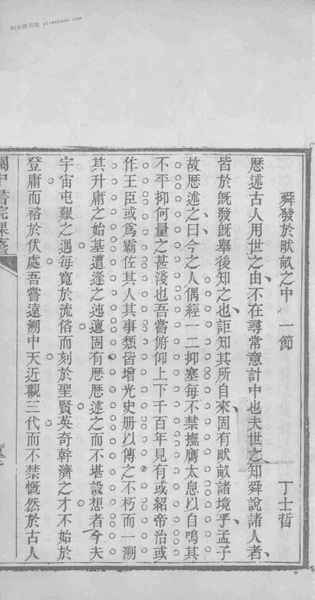 舜發於畎畝之中 一節 丁士哲
歷述古人用世之由不在尋常意計中也夫世之知舜說諸人者
皆於既發既舉後知之也詎知其所自來固有畎畝諸境乎孟子
故歷述之曰今之人偶經一二抑塞每不禁撫膺太息以自鳴其
不平抑何量之甚淺也吾嘗俯仰上下千百年見有或紹帝治或
作王臣或為霸佐其人其事類皆增光史册以傳之不朽而一溯
其升庸之始基遭逢之迍邅固有歷歷述之而不堪設想者今夫
宇宙屯艱之遇每寬於流俗而刻於聖賢英奇幹濟之才不始於
登庸而裕於伏處吾嘗遠溯中天近觀三代而不禁慨然於古人
書院課藝